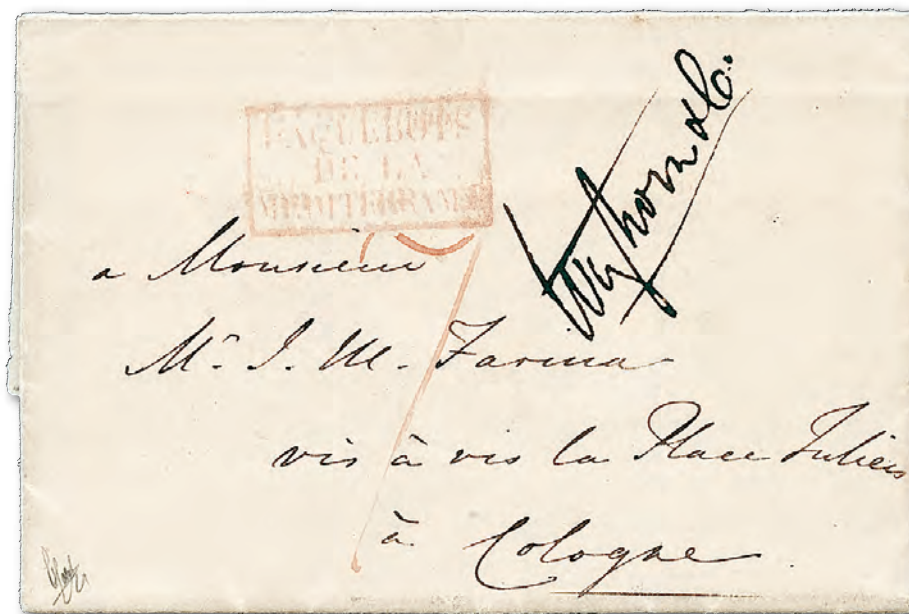 PAQUEBOTS
DE LA
MEDITERRANÉE
Waghorn & Co.
a Monsieur
Mr. J. M. Farina
vis à vis la Place Juliers
à Cologne